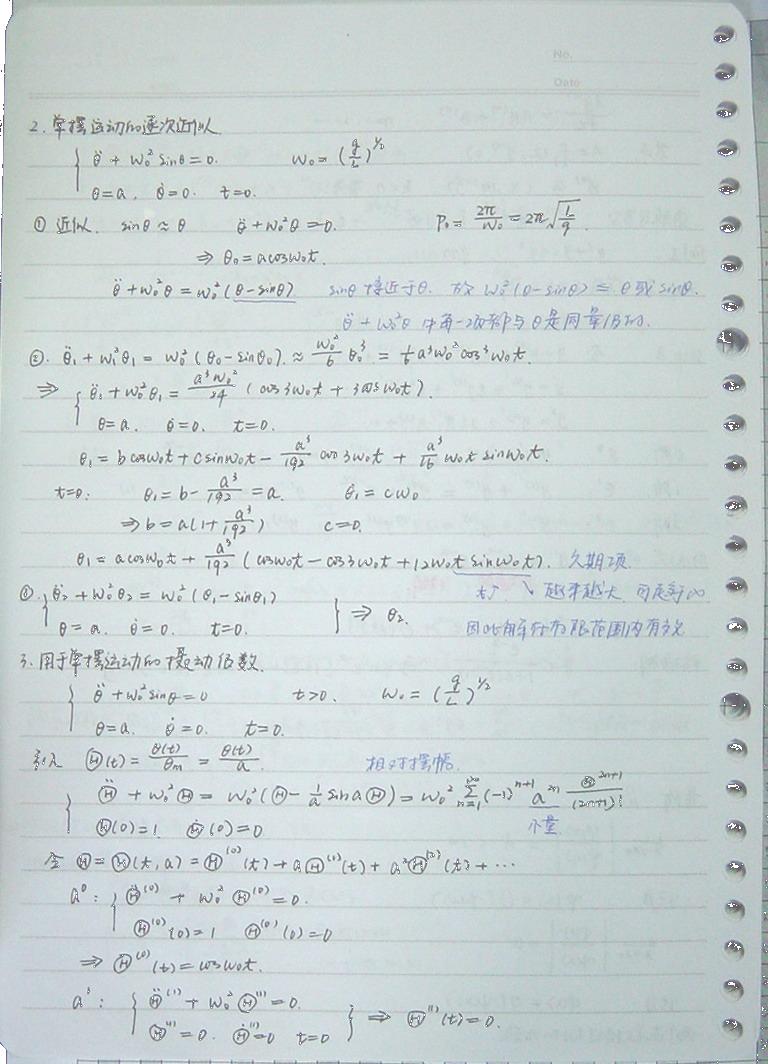 No.
Date
2. 单摆运动的逐次近似
θ̈ + ω₀² sinθ = 0. ω₀ = (g/L)^{1/2}
θ = a, θ̇ = 0. t = 0.
① 近似. sinθ ≈ θ θ̈ + ω₀²θ = 0. P₀ = 2π/ω₀ = 2π√(l/g).
⇒ θ₀ = a cosω₀t.
θ̈ + ω₀²θ = ω₀²(θ - sinθ) sinθ 接近于θ. 故 ω₀²(θ - sinθ) ≤ θ或sinθ.
θ̈ + ω₀²θ 中每一项都与θ是同量级的.
②. θ̈₁ + ω₀²θ₁ = ω₀²(θ₀ - sinθ₀) ≈ ω₀²/6 θ₀³ = 1/6 a³ω₀² cos³ω₀t.
⇒ θ̈₁ + ω₀²θ₁ = a³ω₀²/24 (cos3ω₀t + 3cosω₀t).
θ = a. θ̇ = 0. t = 0.
θ₁ = b cosω₀t + c sinω₀t - a³/192 cos3ω₀t + a³/16 ω₀t sinω₀t.
t=0: θ₁ = b - a³/192 = a. θ̇₁ = cω₀
⇒ b = a(1 + a³/192) c = 0.
θ₁ = a cosω₀t + a³/192 (cosω₀t - cos3ω₀t + 12ω₀t sinω₀t). 久期项
③ θ̈₂ + ω₀²θ₂ = ω₀²(θ₁ - sinθ₁) t↗ ↘ 越来越大 可趋于∞
θ = a. θ̇ = 0. t = 0. ⇒ θ₂. 因此解只在有限范围内有效
3. 用于单摆运动的摄动级数.
θ̈ + ω₀² sinθ = 0 t > 0. ω₀ = (g/L)^{1/2}
θ = a. θ̇ = 0. t = 0.
引入 Θ(t) = θ(t)/θm = θ(t)/a. 相对摆幅.
Θ̈ + ω₀²Θ = ω₀²(Θ - 1/a sin aΘ) = ω₀² Σ_{n=1}^{∞} (-1)^{n+1} a^{2n} Θ^{2n+1}/(2n+1)!
Θ(0) = 1 Θ̇(0) = 0 小量
令 Θ = Θ(t, a) = Θ⁽⁰⁾(t) + aΘ⁽¹⁾(t) + a²Θ⁽²⁾(t) + ⋯
a⁰: Θ̈⁽⁰⁾ + ω₀²Θ⁽⁰⁾ = 0.
Θ⁽⁰⁾(0) = 1 Θ⁽⁰⁾(0) = 0
⇒ Θ⁽⁰⁾(t) = cosω₀t.
a¹: Θ̈⁽¹⁾ + ω₀²Θ⁽¹⁾ = 0.
Θ⁽¹⁾ = 0. Θ̇⁽¹⁾ = 0 t = 0 ⇒ Θ⁽¹⁾(t) = 0.